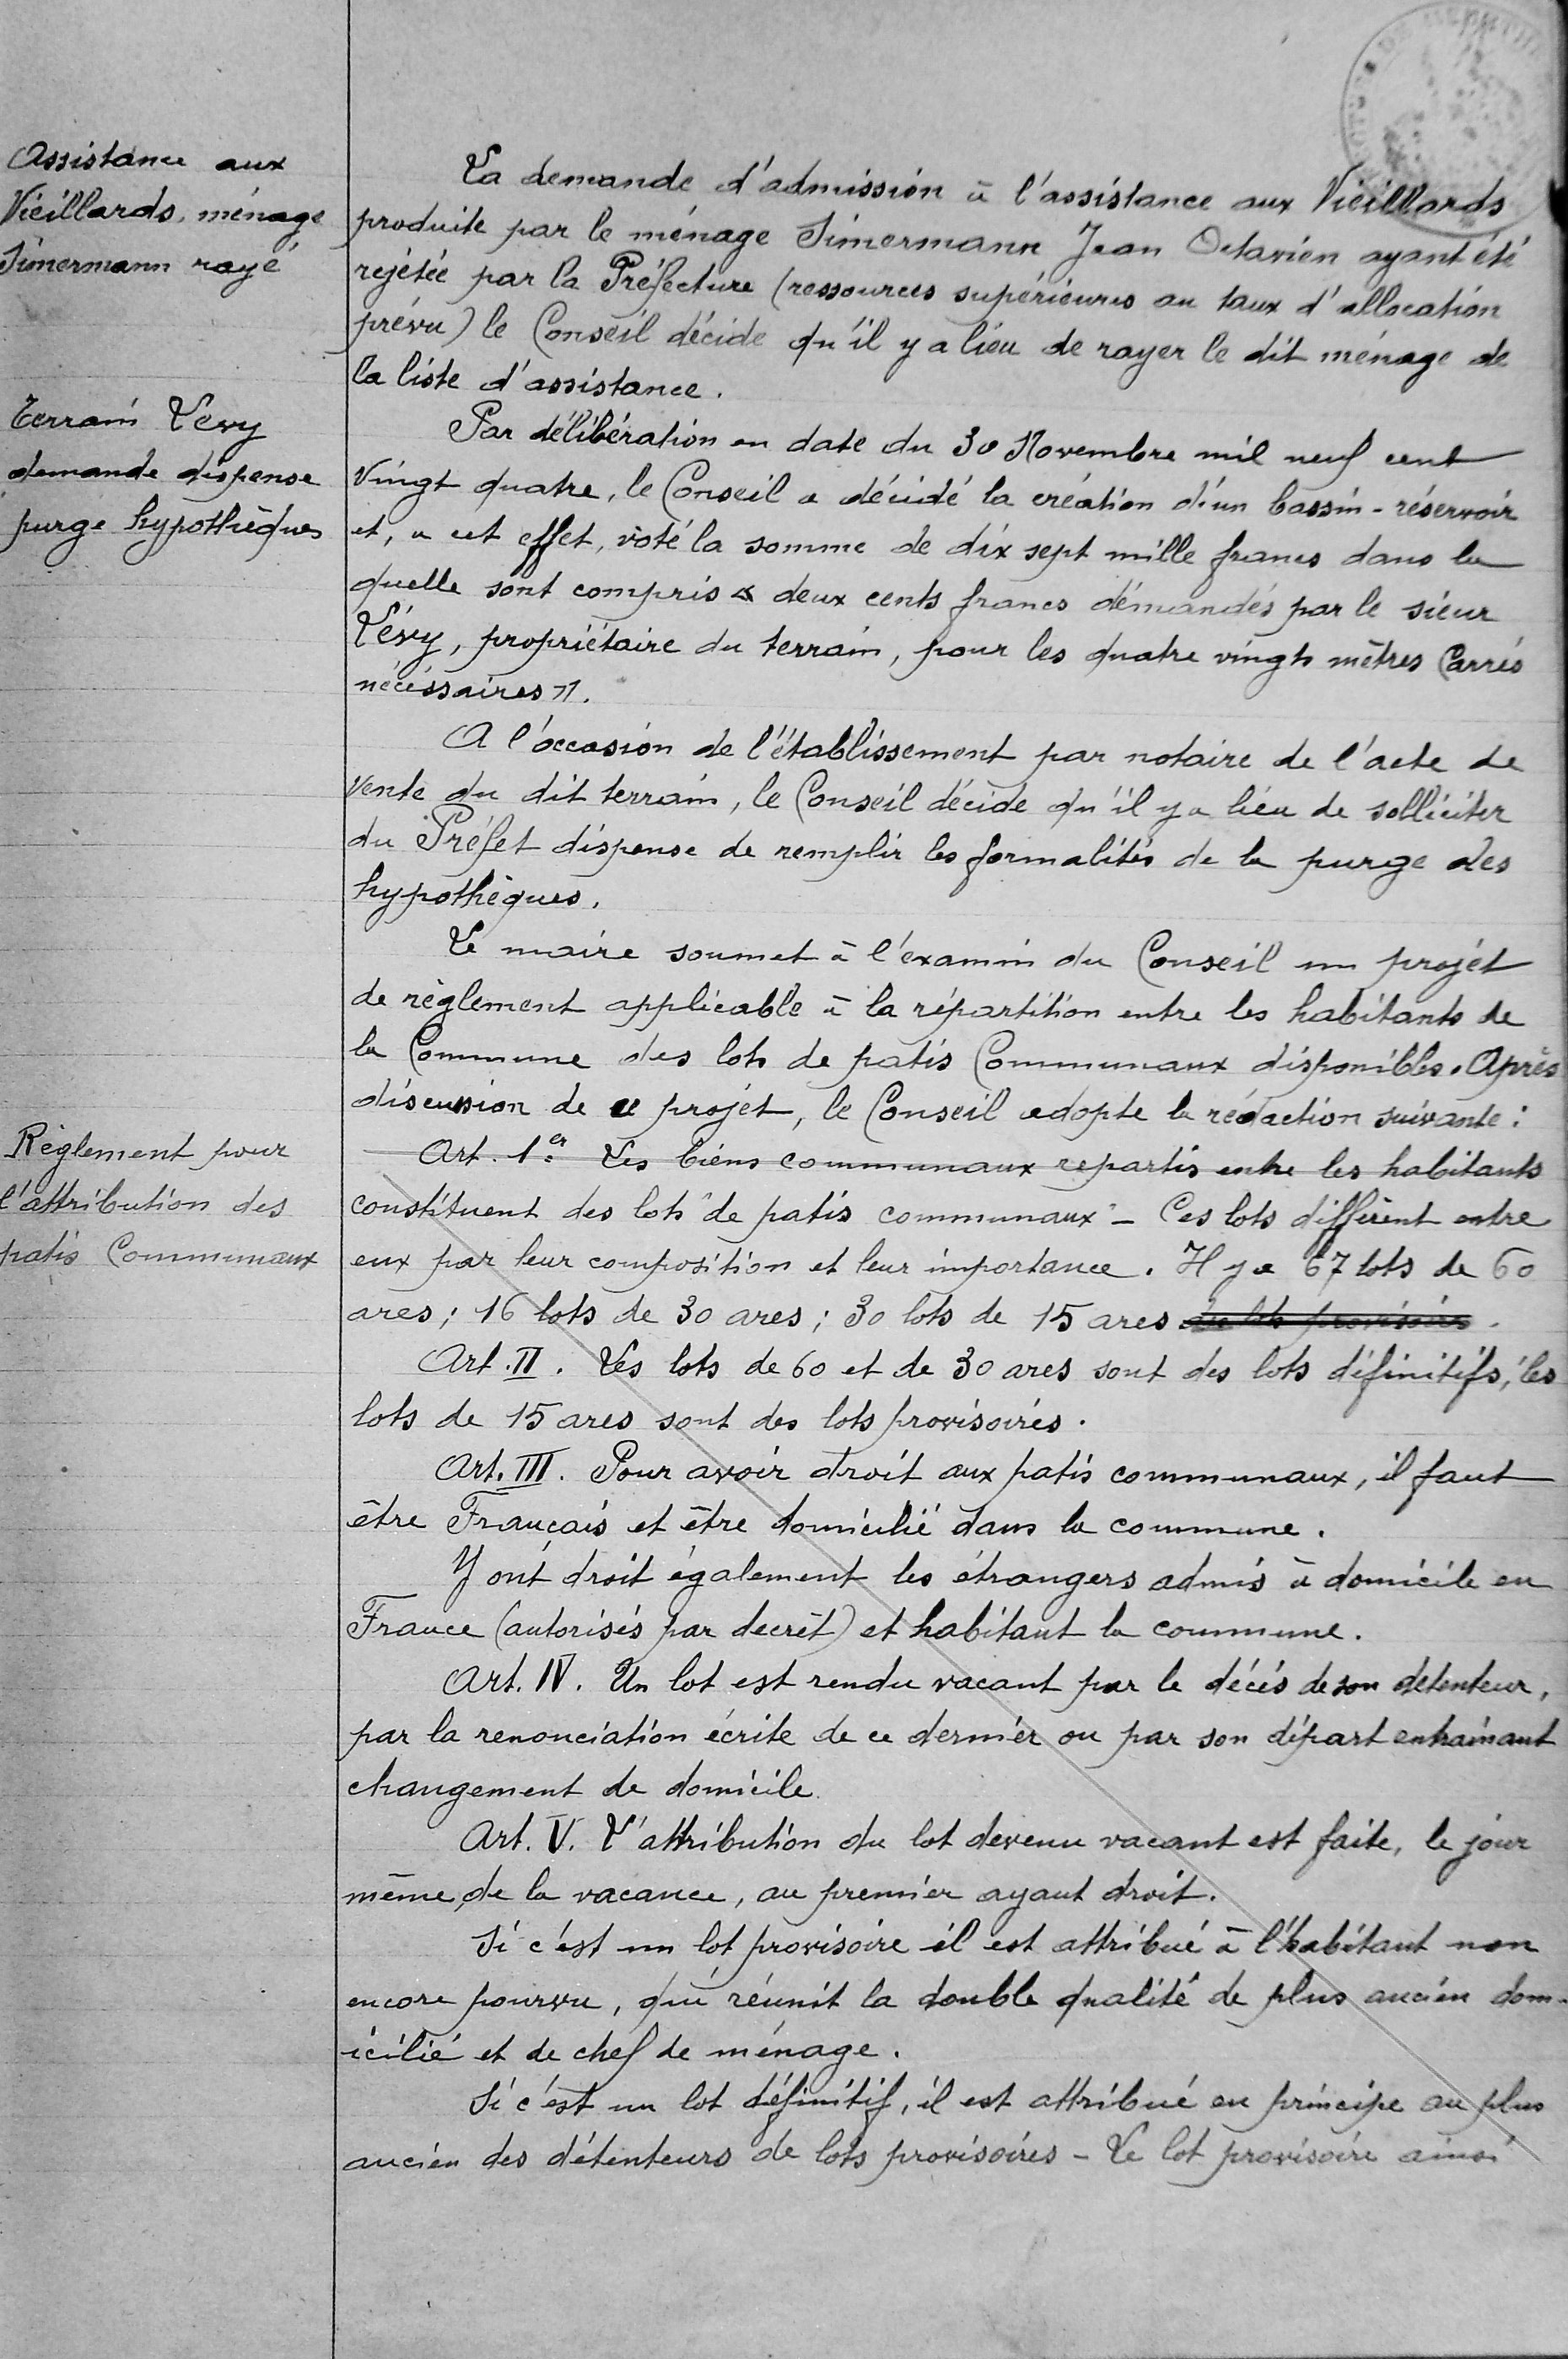 Assistance aux
Vieillards, ménage
Simermann rayé
La demande d'admission à l'assistance aux Vieillards
produite par le ménage Simermann Jean Octavien ayant été
rejétée par la Préfecture (ressources supérieures au taux d'allocation
prévu) le Conseil décide qu'il y a lieu de rayer le dit ménage de
la liste d'assistance.
Terrain Lévy
demande dispense
purge hypothèques
Par délibération en date du 30 Novembre mil neuf cent
Vingt quatre, le Conseil a décidé la création d'un bassin-réservoir
et, a cet effet, voté la somme de dix sept mille francs dans la
quelle sont compris « deux cents francs démandés par le sieur
Lévy, propriétaire du terrain, pour les quatre vingts mètres Carrés
nécéssaires ».
A l'occasion de l'établissement par notaire de l'acte de
Vente du dit terrain, le Conseil décide qu'il y a lieu de solliciter
du Préfet dispense de remplir les formalités de la purge des
hypothèques.
Le maire soumet à l'examin du Conseil un projét
de règlement applicable à la répartition entre les habitants de
la Commune des lots de patis Communaux disponibles. Après
discussion de ce projét, le Conseil adopte la rédaction suivante :
Règlement pour
l'attribution des
patis Communaux
Art. 1er. Les biens communaux repartis entre les habitants
constituent des lots "de patis communaux" - Ces lots diffèrent entre
eux par leur composition et leur importance. Il y a 67 lots de 60
ares ; 16 lots de 30 ares ; 30 lots de 15 ares de lots provisoires.
Art. II. Les lots de 60 et de 30 ares sont des lots définitifs, les
lots de 15 ares sont des lots provisoirés.
Art. III. Pour avoir droit aux patis communaux, il faut
être Français et être domicilié dans la commune.
Y ont droit également les étrangers admis à domicile en
France (autorisés par decrèt) et habitant la commune.
Art. IV. Un lot est rendu vacant par le décés de son détenteur,
par la renonciation écrite de ce dernier ou par son départ entrainant
changement de domicile.
Art. V. L'attribution du lot devenu vacant est faite, le jour
même, de la vacance, au premier ayant droit.
Si c'est un lot provisoire il est attribué à l'habitant non
encore pourvu, qui réunit la double qualité de plus ancien dom-
icilié et de chef de ménage.
Si c'est un lot définitif, il est attribué en principe au plus
ancien des détenteurs de lots provisoires - Le lot provisoire ainsi